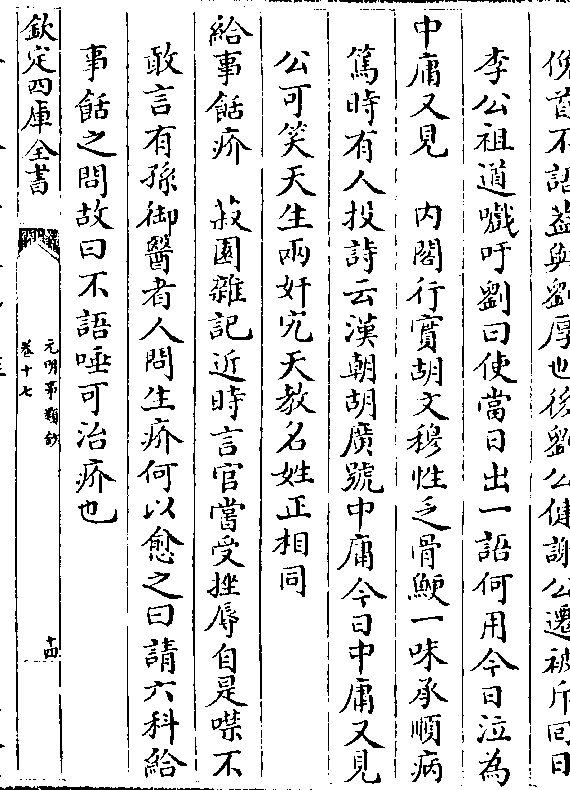 俛首不語蓋與劉厚也後劉公健謝公遷被斥同日
李公祖道嚱吁劉曰使當日出一語何用今日泣為
中庸又見　內閣行實胡文穆性乏骨鯁一味承順病
篤時有人投詩云漢朝胡廣號中庸今日中庸又見
公可笑天生兩奸宄天教名姓正相同
給事餂疥　菽園雜記近時言官嘗受挫辱自是噤不
敢言有孫御醫者人問生疥何以愈之曰請六科給
事餂之問故曰不語唾可治疥也
欽定四庫全書
元明事類鈔
卷十七
十四